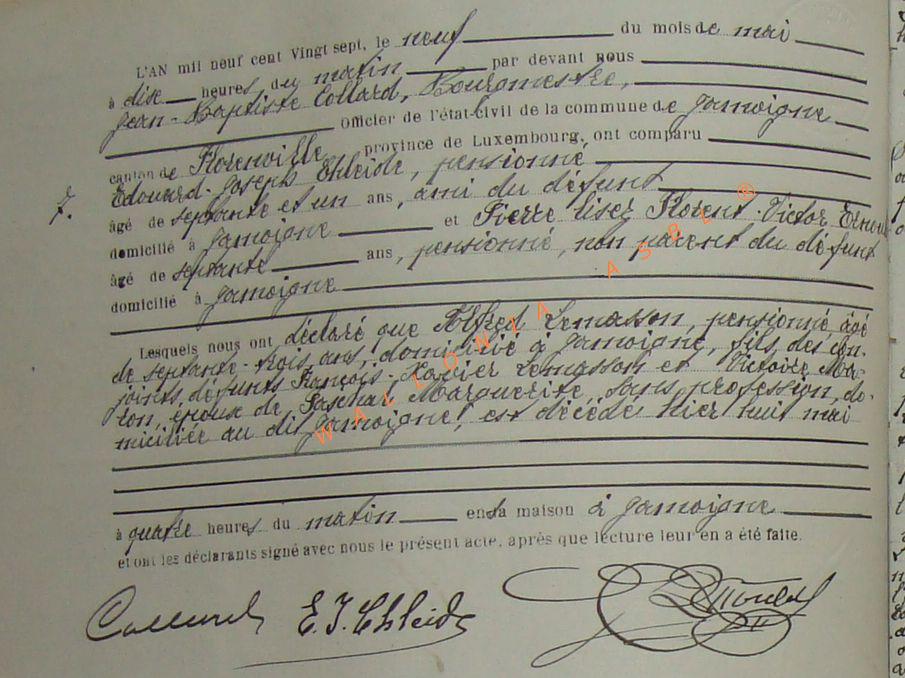 L'AN mil neuf cent Vingt sept, le neuf du mois de mai
à dix heures du matin par devant nous
Jean-Baptiste Collard, Bourgmestre,
Officier de l'état-civil de la commune de Jamoigne
canton de Florenville province de Luxembourg, ont comparu
Edouard-Joseph Thleide, pensionné
7. âgé de septante et un ans, ami du défunt
domicilié à Jamoigne et Pierre Florent Victor
âgé de septante ans, pensionné, non parent du défunt
domicilié à Jamoigne
Lesquels nous ont déclaré que Alfred Lemasson, pensionné âgé
de septante-trois ans, domicilié à Jamoigne, fils des con-
joints défunts François-Xavier Lemasson et Victoire Ma-
ton, époux de Paschal Marguerite, sans profession, do-
miciliée au dit Jamoigne, est décédé hier huit mai
à quatre heures du matin en sa maison à Jamoigne
et ont les déclarants signé avec nous le présent acte, après que lecture leur en a été faite.
Collard E. J. Chleide
WALLONIA ASBL ®